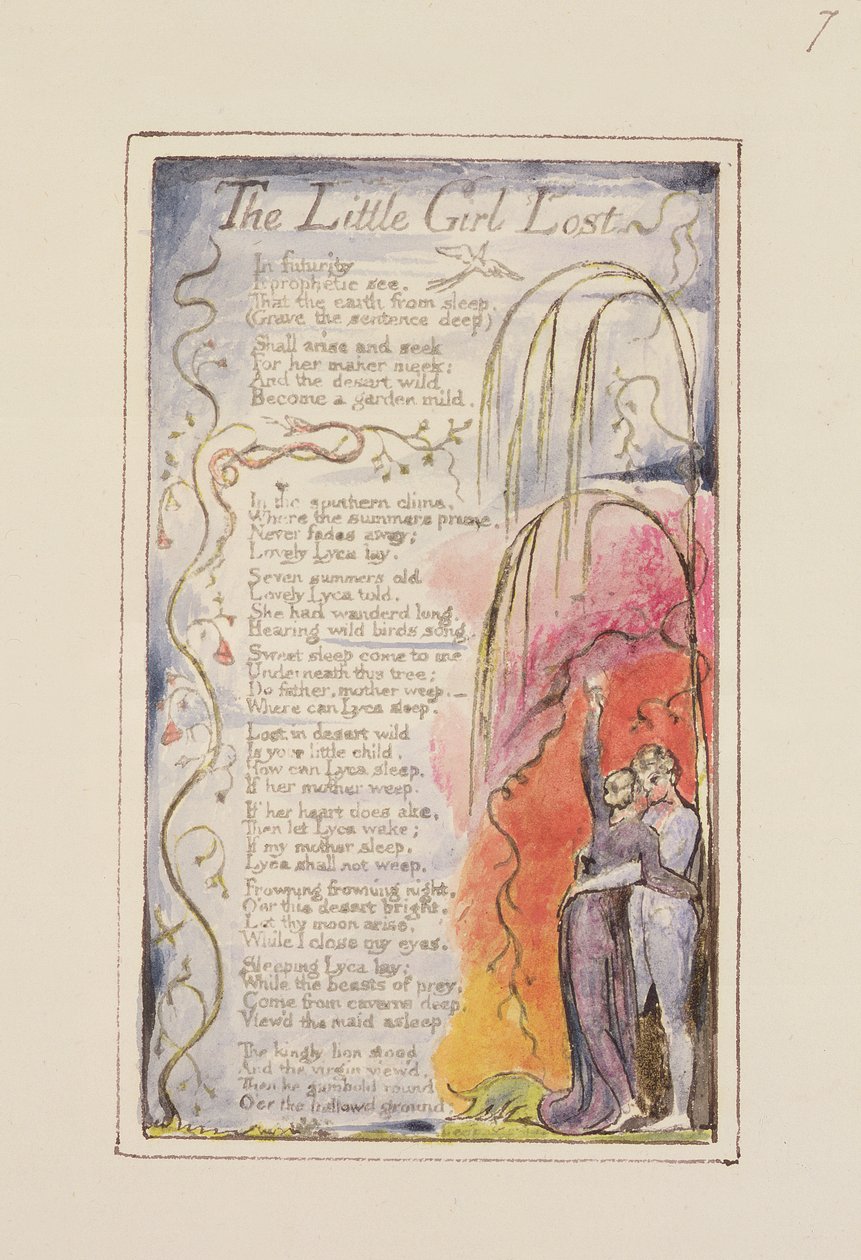 7
The Little Girl Lost
In futurity
I prophetic see.
That the earth from sleep,
(Grave the sentence deep)
Shall arise and seek
For her maker meek:
And the desart wild
Become a garden mild.
In the southern clime,
Where the summers prime,
Never fades away;
Lovely Lyca lay.
Seven summers old
Lovely Lyca told,
She had wanderd long,
Hearing wild birds song.
Sweet sleep come to me
Underneath this tree;
Do father, mother weep.—
Where can Lyca sleep.
Lost in desart wild
Is your little child.
How can Lyca sleep,
If her mother weep.
If her heart does ake,
Then let Lyca wake;
If my mother sleep,
Lyca shall not weep.
Frowning frowning night,
O'er this desart bright,
Let thy moon arise,
While I close my eyes.
Sleeping Lyca lay;
While the beasts of prey,
Come from caverns deep,
View'd the maid asleep
The kingly lion stood
And the virgin view'd,
Then he gambold round
O'er the hallowd ground.